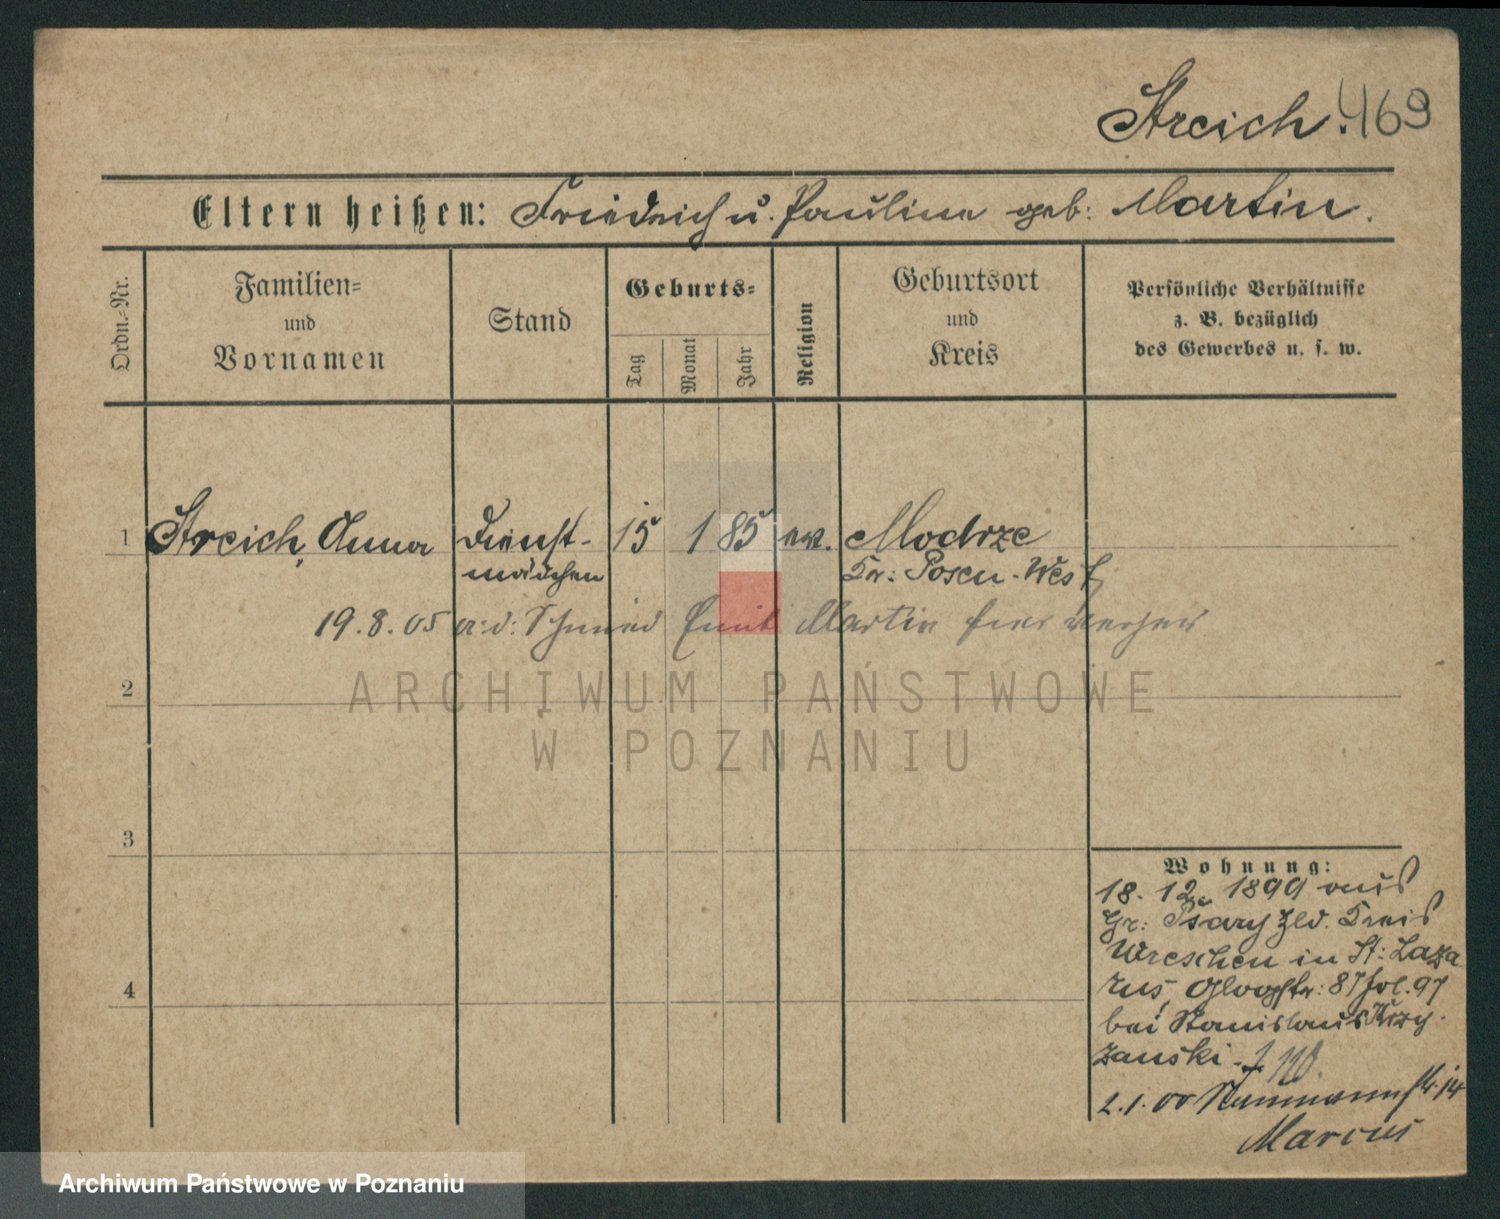 Streich. 469
Eltern heißen: Friedrich u. Pauline geb: Martin.
Ordn.-Nr.
Familien-
und
Vornamen
Stand
Geburts-
Tag
Monat
Jahr
Religion
Geburtsort
und
Kreis
Persönliche Verhältnisse
z. B. bezüglich
des Gewerbes u. s. w.
1 Streich, Anna Dienst- 15 1 85 ev. Modrze
mädchen Kr: Posen-West
19.8.05 a:d: Schmied Emil Martin hier
ARCHIWUM PAŃSTWOWE
2
W POZNANIU
3
Wohnung:
18. 12. 1899 aus
Gr: Psary Kreis
4
Wreschen in St: Laza
rus, Glogstr: 87 fol. 97
bei Stanislaus Krzy
zanski
2.1.00 Naumannstr 14
Marcus
Archiwum Państwowe w Poznaniu